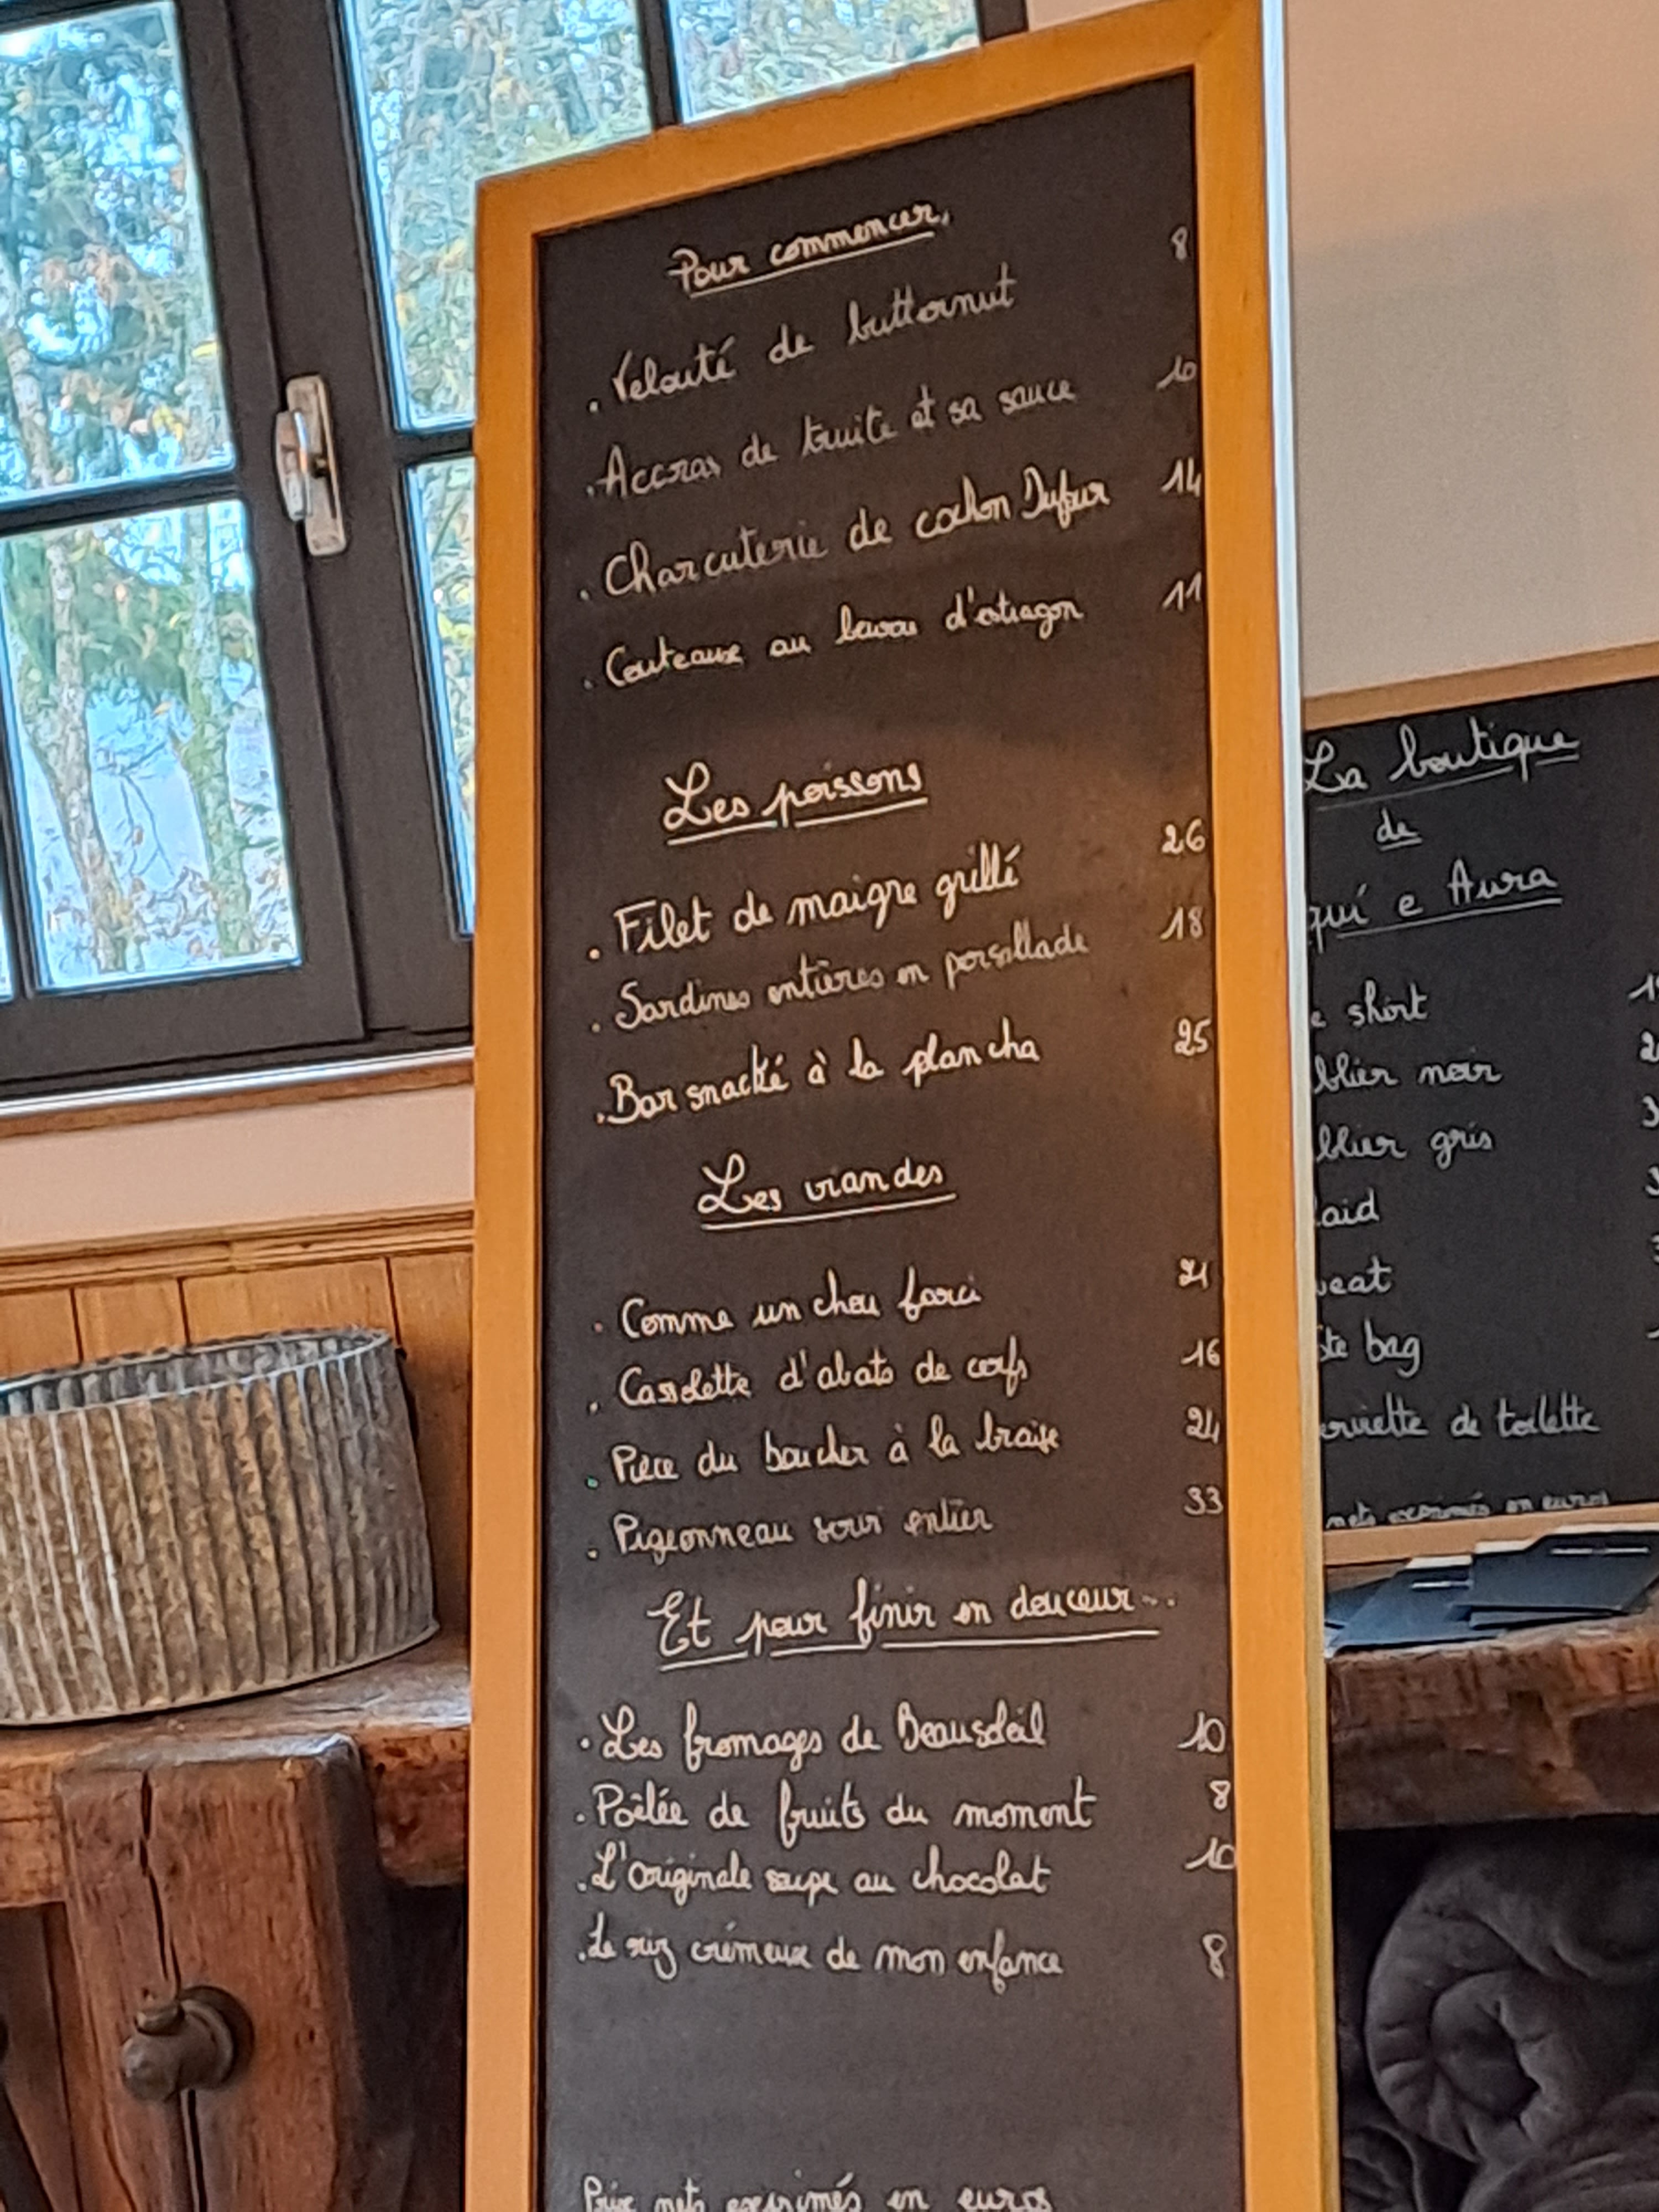 Pour commencer,
. Velouté de butternut 8
. Accras de truite et sa sauce 10
. Charcuterie de cochon Dufour 14
. Couteaux au d'estragon 11
Les poissons
. Filet de maigre grillé 26
. Sardines entières en persillade 18
. Bar snacké à la plancha 25
Les viandes
. Comme un chou farci 21
. Cassolette d'abats de cerfs 16
. Pièce du boucher à la braise 24
. Pigeonneau servi entier 33
Et pour finir en douceur...
. Les fromages de Beausoleil 10
. Poêlée de fruits du moment 8
. L'originale soupe au chocolat 10
. Le riz crémeux de mon enfance 8
Prix nets exprimés en euros
La boutique
de
qui e Aura
e short
blier noir
blier gris
laid
weat
te bag
erviette de toilette
nets exprimés en euros